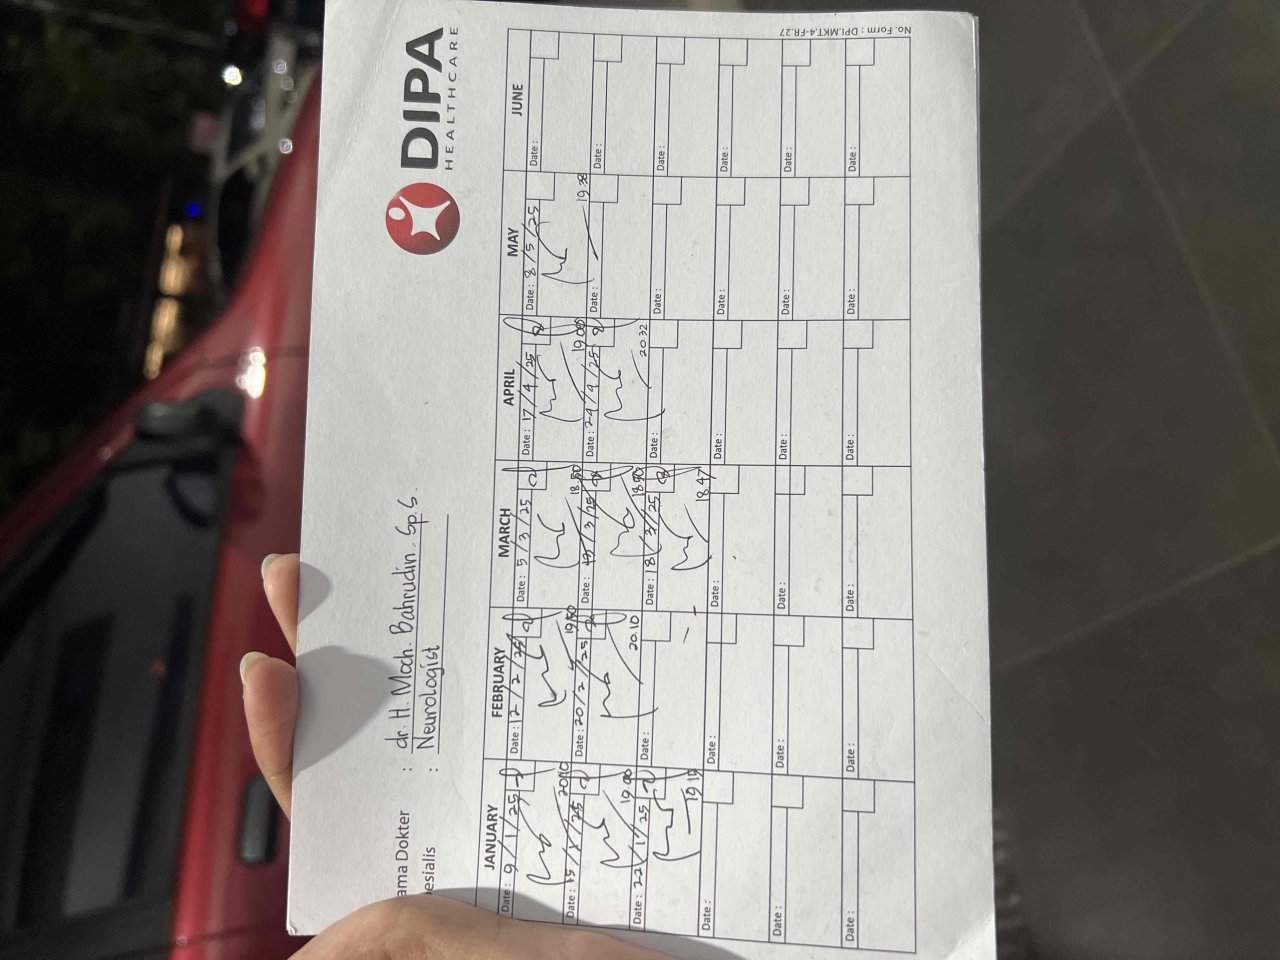 DIPA
HEALTHCARE
ama Dokter : dr. H. Moch. Bahrudin. Sp.S
esialis : Neurologist
JANUARY FEBRUARY MARCH APRIL MAY JUNE
Date : 9/1/25 Date : 12/2/25 Date : 5/3/25 Date : 17/4/25 Date : 8/5/25 Date :
20.10 19.50 18.50 19.00 19.38
Date : 15/1/25 Date : 20/2/25 Date : 13/3/25 Date : 24/4/25 Date : Date :
19.00 20.10 18.50 20.32
Date : 22/1/25 Date : Date : 18/3/25 Date : Date : Date :
19.19 18.47
Date : Date : Date : Date : Date : Date :
Date : Date : Date : Date : Date : Date :
Date : Date : Date : Date : Date : Date :
No. Form : DPI.MKT.4-FR.27